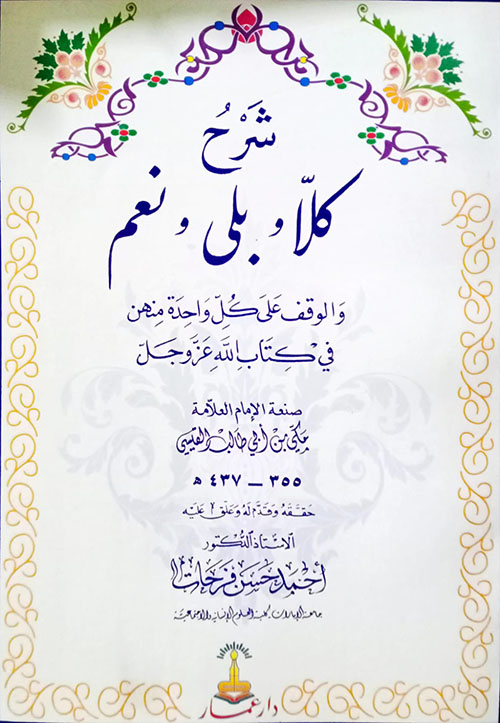 شَرْحُ
كلّا و بلى و نعم
وَالوقف عَلىَ كُلِّ وَاحِدَة مِنهن
في كِتَابِ اللَّهِ عَزَّ وَجَلّ
صنعة الإمام العلّامة
مكي بن أبي طالب القيسي
٣٥٥ - ٤٣٧ ه
حَقّقَهُ وَقَدَّمَ لَهُ وَعَلّقَ عَلَيه
الأسْتاذ الدّكتور
أحمد حسَن فرَحَات
جامعة الإمارات - كلية العلوم الإنسانية والاجتماعية
دار عمار